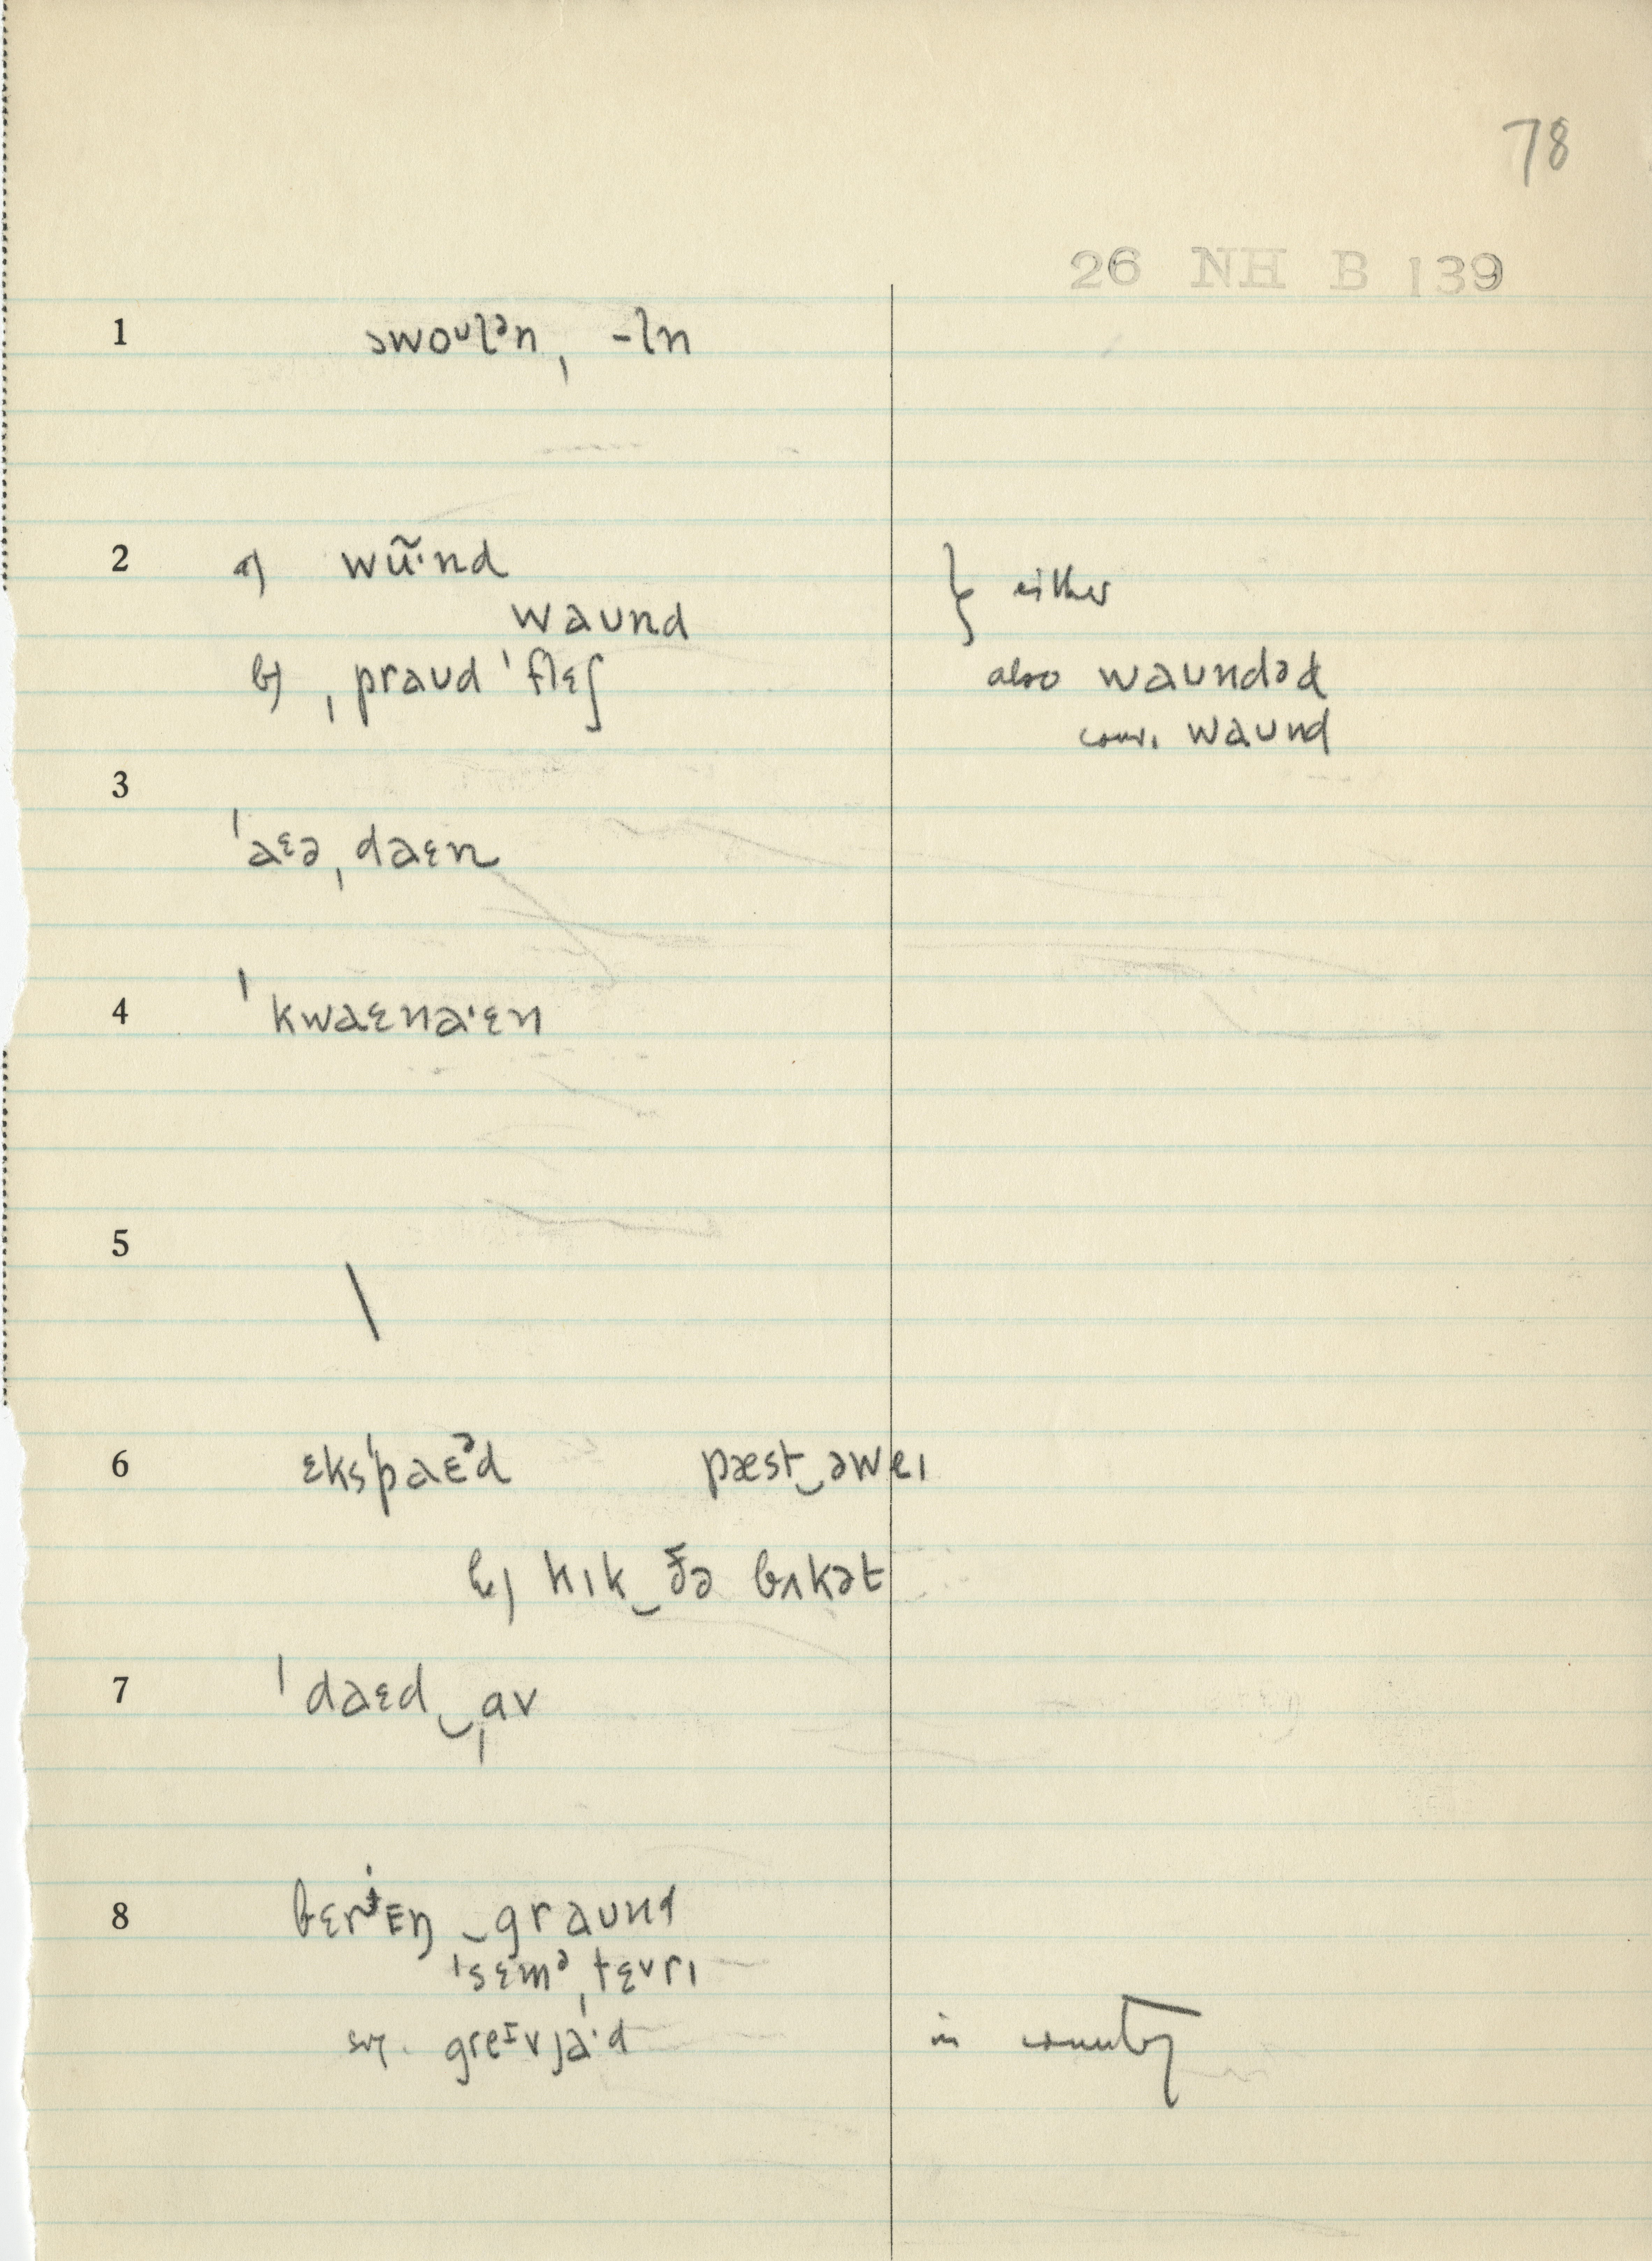 78
26 NH B 139
1 swoᶷlᵊn, -ln
2 a) wʉ̃·nd
waund } either
b) ˌpraud ˈflɛʃ also waundəd
conv. waund
3
ˈaᵋə ˌdaɛn
4 ˈkwaɛna·ɛn
5
\
6 ɛksˈpaɛᵊd pæst‿əweɪ
b) kɪk‿ðə bʌkət
7 ˈdaɛd‿ˌɑv
8 bɛrɪɛŋ‿graund
ˈsɛmᵊˌtɛvrɪ
greᴵvja·d in country